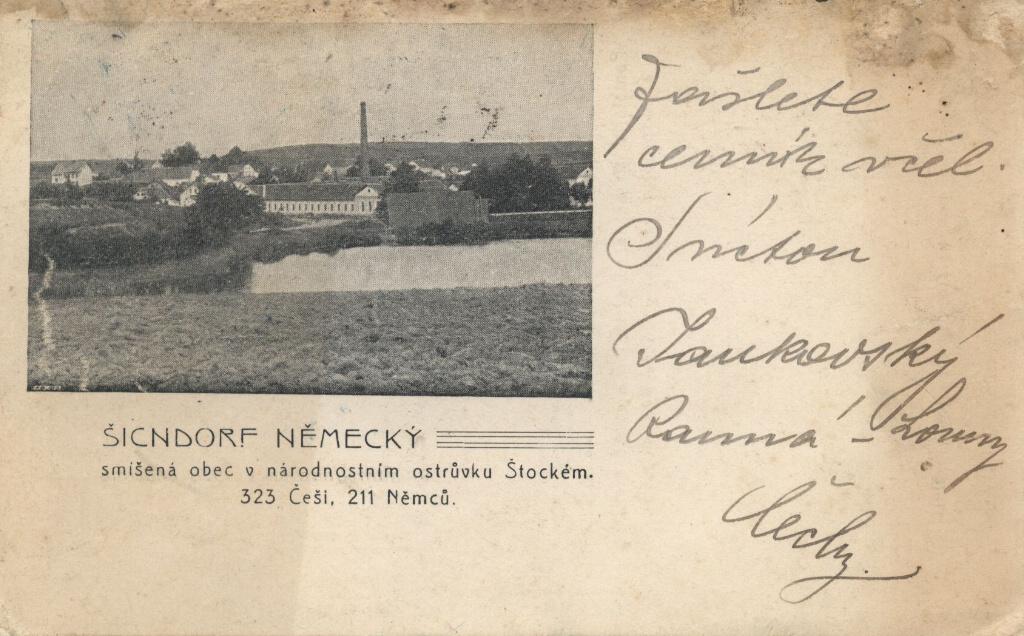 ŠICNDORF NĚMECKÝ
smíšená obec v národnostním ostrůvku Štockém.
323 Češi, 211 Němců.
Zašlete
cenník včel.
Jankovský
Ranná - Louny
Čechy.